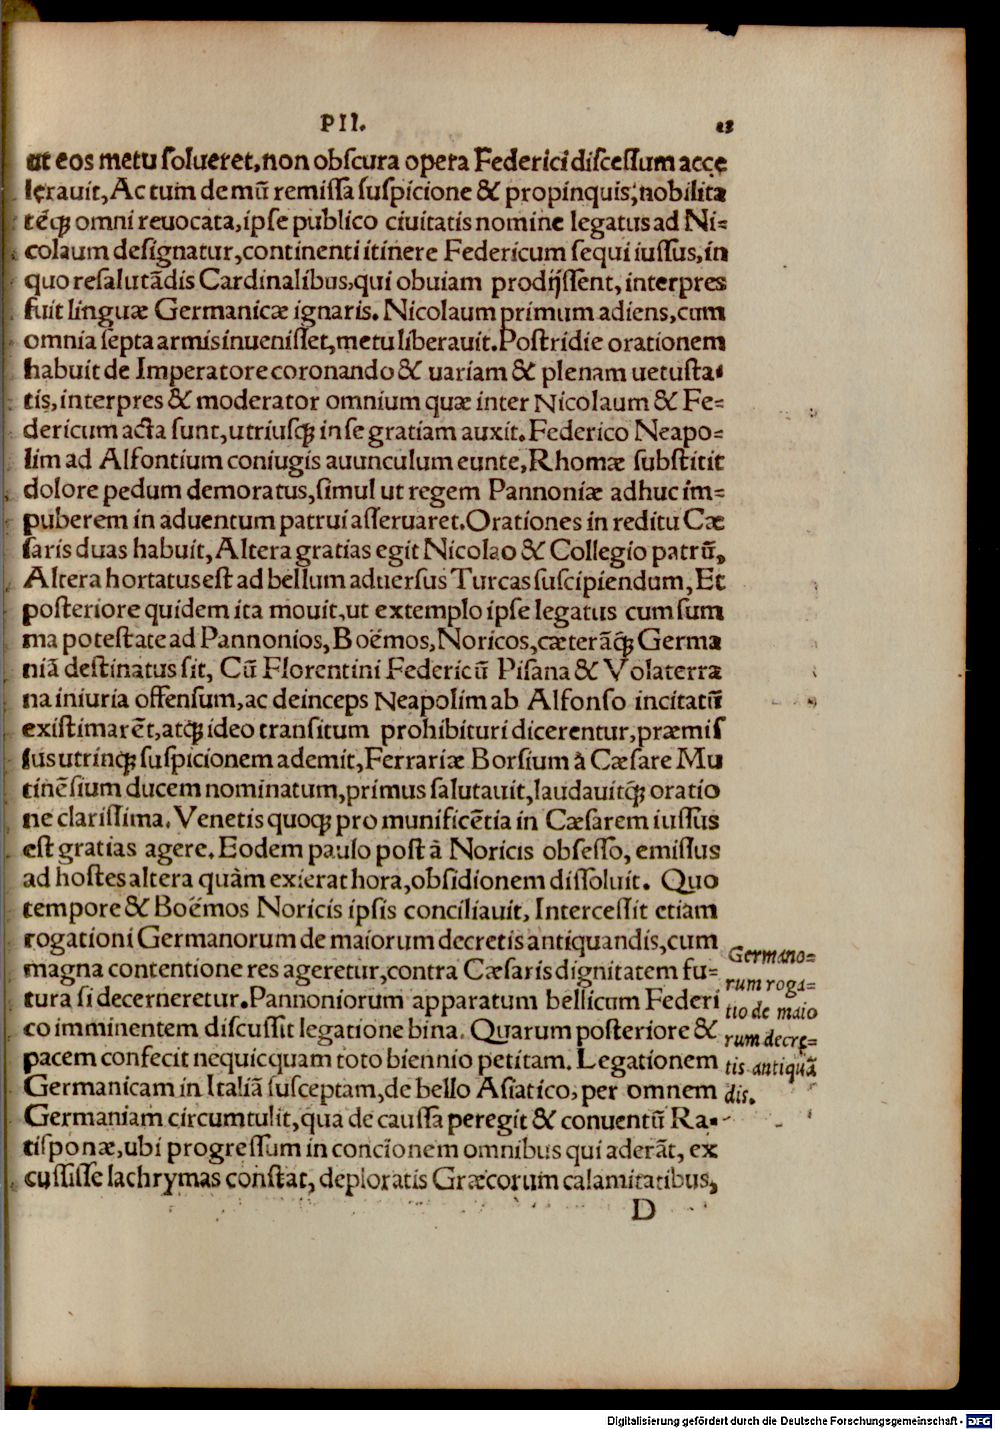 PII.
ut eos metu solueret, non obscura opera Federici discessum accę
lęrauit, Ac tum demū remissa suspicione & propinquis, nobilita
tēq; omni reuocata, ipse publico ciuitatis nomine legatus ad Ni=
colaum designatur, continenti itinere Federicum sequi iussus, in
quo resalutādis Cardinalibus, qui obuiam prodijssent, interpres
fuit linguæ Germanicæ ignaris. Nicolaum primum adiens, cum
omnia septa armis inuenisset, metu liberauit. Postridie orationem
habuit de Imperatore coronando & uariam & plenam uetusta=
tis, interpres & moderator omnium quæ inter Nicolaum & Fe=
dericum acta sunt, utriusq; in se gratiam auxit. Federico Neapo=
lim ad Alfontium coniugis auunculum eunte, Rhomæ substitit
dolore pedum demoratus, simul ut regem Pannoniæ adhuc im=
puberem in aduentum patrui asseruaret. Orationes in reditu Cæ
saris duas habuit, Altera gratias egit Nicolao & Collegio patrū,
Altera hortatus est ad bellum aduersus Turcas suscipiendum, Et
posteriore quidem ita mouit, ut extemplo ipse legatus cum sum
ma potestate ad Pannonios, Boëmos, Noricos, cæterāq; Germa
niā destinatus sit, Cū Florentini Federicū Pisana & Volaterra
na iniuria offensum, ac deinceps Neapolim ab Alfonso incitatū
existimarēt, atq; ideo transitum prohibituri dicerentur, præmis
sus utrinq; suspicionem ademit, Ferrariæ Borsium à Cæsare Mu
tinēsium ducem nominatum, primus salutauit, laudauitq; oratio
ne clarissima. Venetis quoq; pro munificētia in Cæsarem iussus
est gratias agere. Eodem paulo post à Noricis obsesso, emissus
ad hostes altera quàm exierat hora, obsidionem dissoluit. Quo
tempore & Boëmos Noricis ipsis conciliauit, Intercessit etiam
rogationi Germanorum de maiorum decretis antiquandis, cum
magna contentione res ageretur, contra Cæsaris dignitatem fu=
tura si decerneretur. Pannoniorum apparatum bellicum Federi
co imminentem discussit legatione bina. Quarum posteriore &
pacem confecit nequicquam toto biennio petitam. Legationem
Germanicam in Italiā susceptam, de bello Asiatico, per omnem
Germaniam circumtulit, qua de caussa peregit & conuentū Ra=
tisponæ, ubi progressum in concionem omnibus qui aderāt, ex
cussisse lachrymas constat, deploratis Græcorum calamitatibus,
D
Germano=
rum roga=
tio de maio
rum decrę=
tis antiquā
dis.
Digitalisierung gefördert durch die Deutsche Forschungsgemeinschaft - DFG